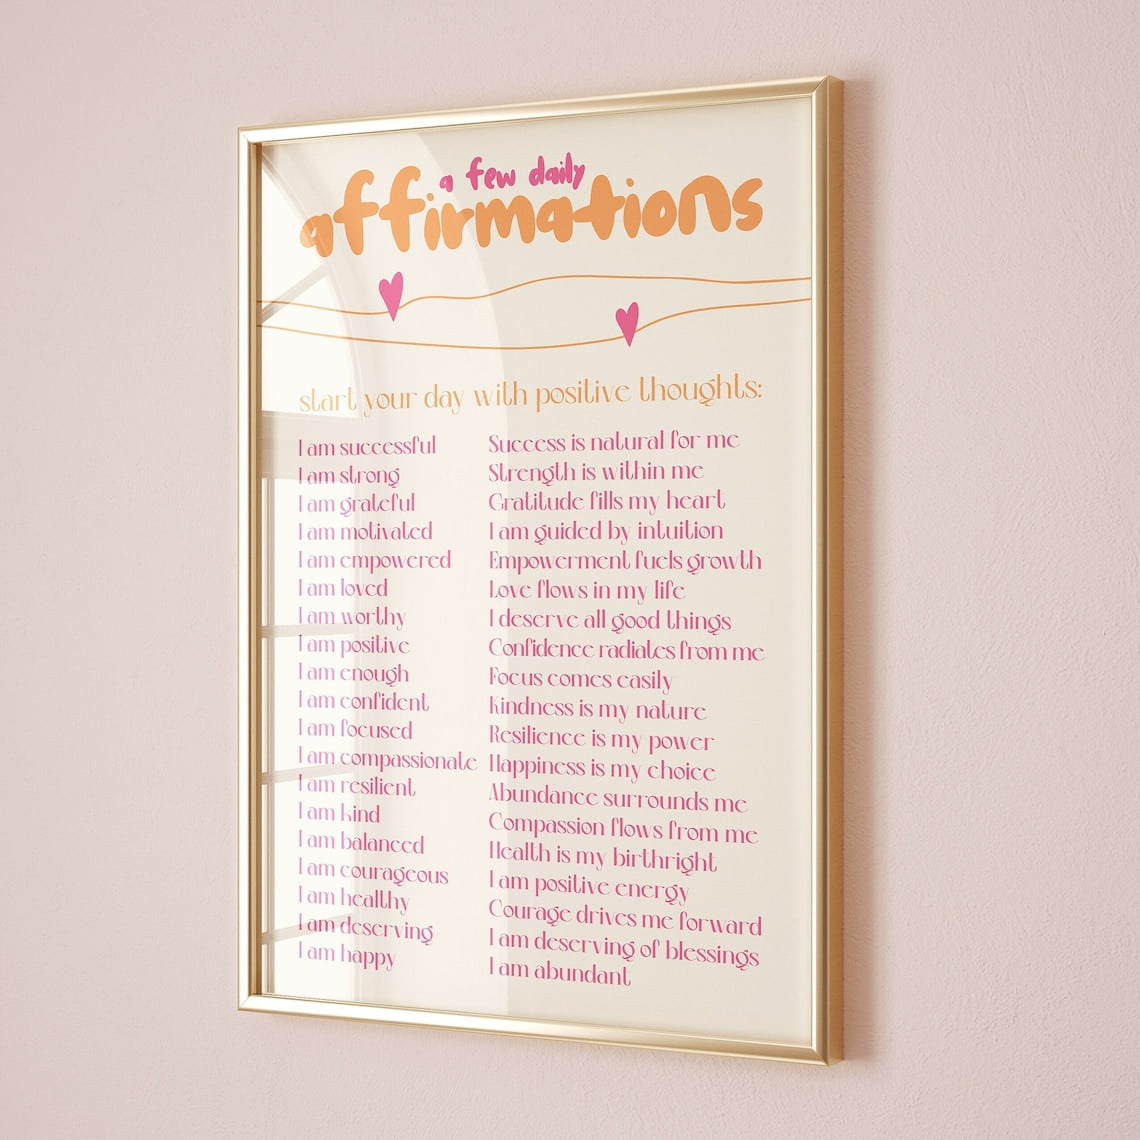 a few daily
affirmations
start your day with positive thoughts:
I am successful
I am strong
I am grateful
I am motivated
I am empowered
I am loved
I am worthy
I am positive
I am enough
I am confident
I am focused
I am compassionate
I am resilient
I am kind
I am balanced
I am courageous
I am healthy
I am deserving
I am happy
Success is natural for me
Strength is within me
Gratitude fills my heart
I am guided by intuition
Empowerment fuels growth
Love flows in my life
I deserve all good things
Confidence radiates from me
Focus comes easily
Kindness is my nature
Resilience is my power
Happiness is my choice
Abundance surrounds me
Compassion flows from me
Health is my birthright
I am positive energy
Courage drives me forward
I am deserving of blessings
I am abundant